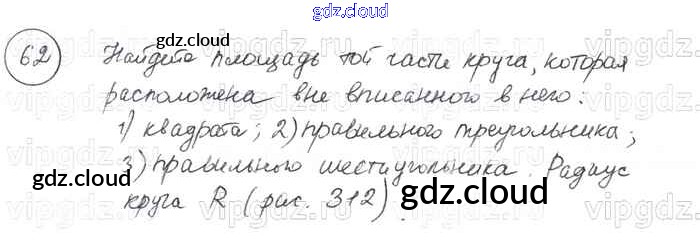 gdz.cloud
gdz.cloud
62 Найдите площадь той части круга, которая
расположена вне вписанного в него:
1) квадрата; 2) правильного треугольника;
3) правильного шестиугольника. Радиус
gdz.cloud
круга R (рис. 312).
gdz.cloud